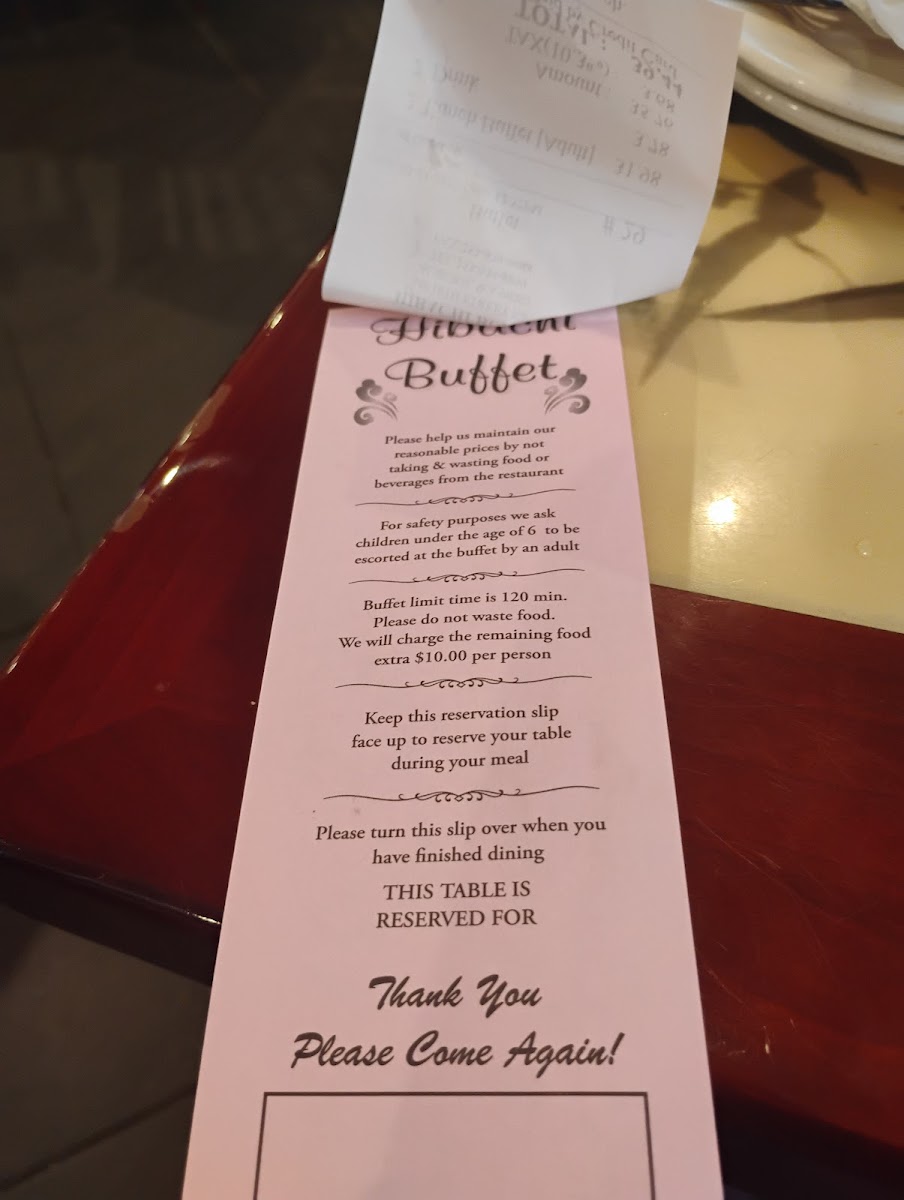 TOTAL: 39.44
TAX(10.3%): 3.68
Amount: 35.76
Drink 3.78
Lunch Buffet [Adult] 31.98
Buffet # 29
Hibachi
Buffet
Please help us maintain our
reasonable prices by not
taking & wasting food or
beverages from the restaurant
For safety purposes we ask
children under the age of 6 to be
escorted at the buffet by an adult
Buffet limit time is 120 min.
Please do not waste food.
We will charge the remaining food
extra $10.00 per person
Keep this reservation slip
face up to reserve your table
during your meal
Please turn this slip over when you
have finished dining
THIS TABLE IS
RESERVED FOR
Thank You
Please Come Again!